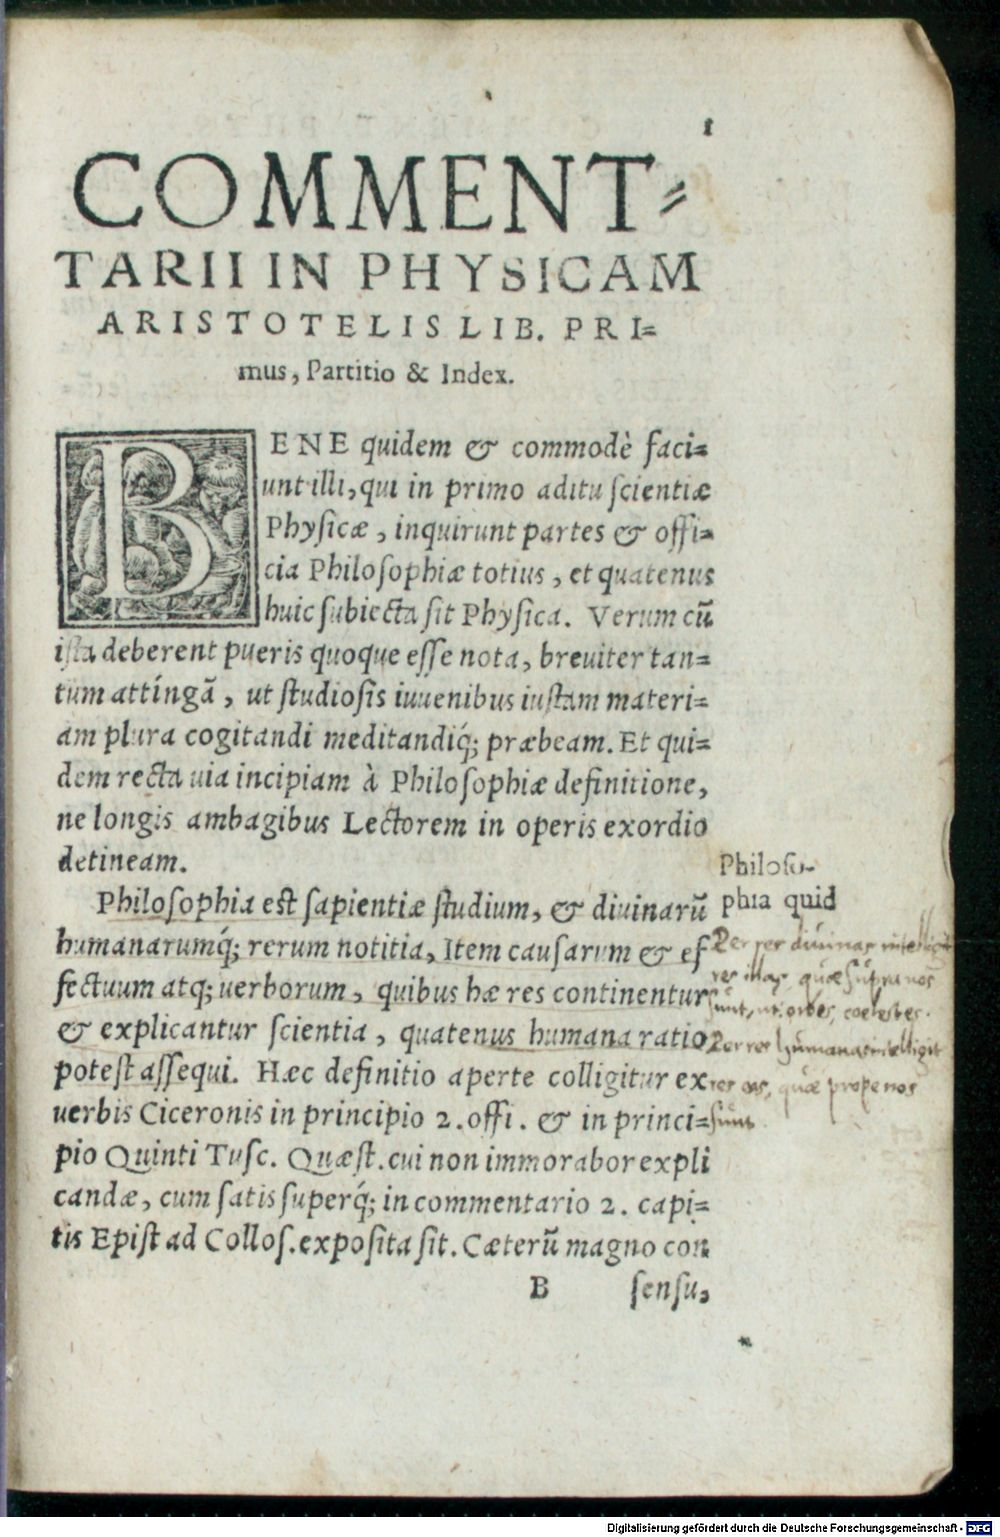 1
COMMENT-
TARII IN PHYSICAM
ARISTOTELIS LIB. PRI=
mus, Partitio & Index.
BENE quidem & commodè faci=
unt illi, qui in primo aditu scientiæ
Physicæ, inquirunt partes & offi=
cia Philosophiæ totius, et quatenus
huic subiecta sit Physica. Verum cũ
ista deberent pueris quoque esse nota, breuiter tan=
tum attingã, ut studiosis iuuenibus iustam materi=
am plura cogitandi meditandiq́; præbeam. Et qui=
dem recta uia incipiam à Philosophiæ definitione,
ne longis ambagibus Lectorem in operis exordio
detineam.
Philoso-
phia quid
Philosophia est sapientiæ studium, & diuinarũ
humanarumq́; rerum notitia, Item causarum & ef
fectuum atq; uerborum, quibus hæ res continentur
& explicantur scientia, quatenus humana ratio
potest assequi. Hæc definitio aperte colligitur ex
uerbis Ciceronis in principio 2. offi. & in princi=
pio Quinti Tusc. Quæst. cui non immorabor expli
candæ, cum satis superq́; in commentario 2. capi=
tis Epist ad Collos. exposita sit. Cæterũ magno con
Per res diuinas intelligit
res illas, quæ supra nos
sunt, ut orbes, coelestes.
Per res humanas intelligit
res eas, quæ prope nos
sunt
B sensu,
Digitalisierung gefördert durch die Deutsche Forschungsgemeinschaft - DFG